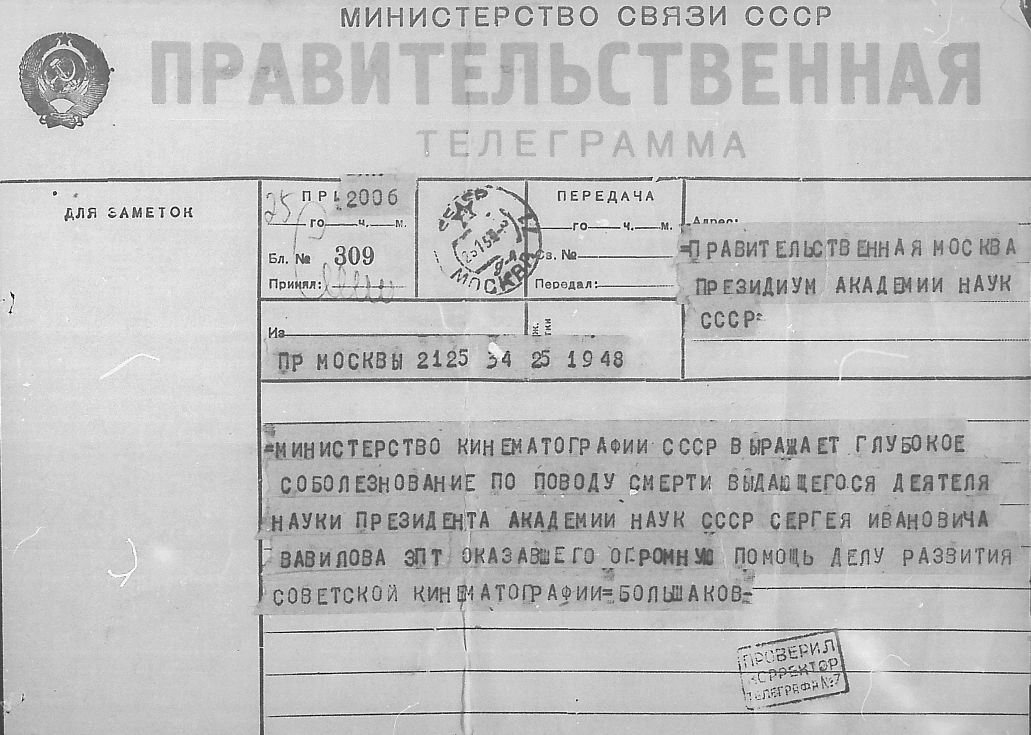 МИНИСТЕРСТВО СВЯЗИ СССР
ПРАВИТЕЛЬСТВЕННАЯ
ТЕЛЕГРАММА
ДЛЯ ЗАМЕТОК
25
ПРИ 2006
го ч. м.
Бл. № 309
Принял:
МОСКВА
ПЕРЕДАЧА
го ч. м.
Св. №
Передал:
Адрес:
=ПРАВИТЕЛЬСТВЕННАЯ МОСКВА
ПРЕЗИДИУМ АКАДЕМИИ НАУК
СССР=
Из
ПР МОСКВЫ 2125 34 25 1948
=МИНИСТЕРСТВО КИНЕМАТОГРАФИИ СССР ВЫРАЖАЕТ ГЛУБОКОЕ
СОБОЛЕЗНОВАНИЕ ПО ПОВОДУ СМЕРТИ ВЫДАЮЩЕГОСЯ ДЕЯТЕЛЯ
НАУКИ ПРЕЗИДЕНТА АКАДЕМИИ НАУК СССР СЕРГЕЯ ИВАНОВИЧА
ВАВИЛОВА ЗПТ ОКАЗАВШЕГО ОГРОМНУЮ ПОМОЩЬ ДЕЛУ РАЗВИТИЯ
СОВЕТСКОЙ КИНЕМАТОГРАФИИ=БОЛЬШАКОВ-
ПРОВЕРИЛ
КОРРЕКТОР
ТЕЛЕГРАФА №7